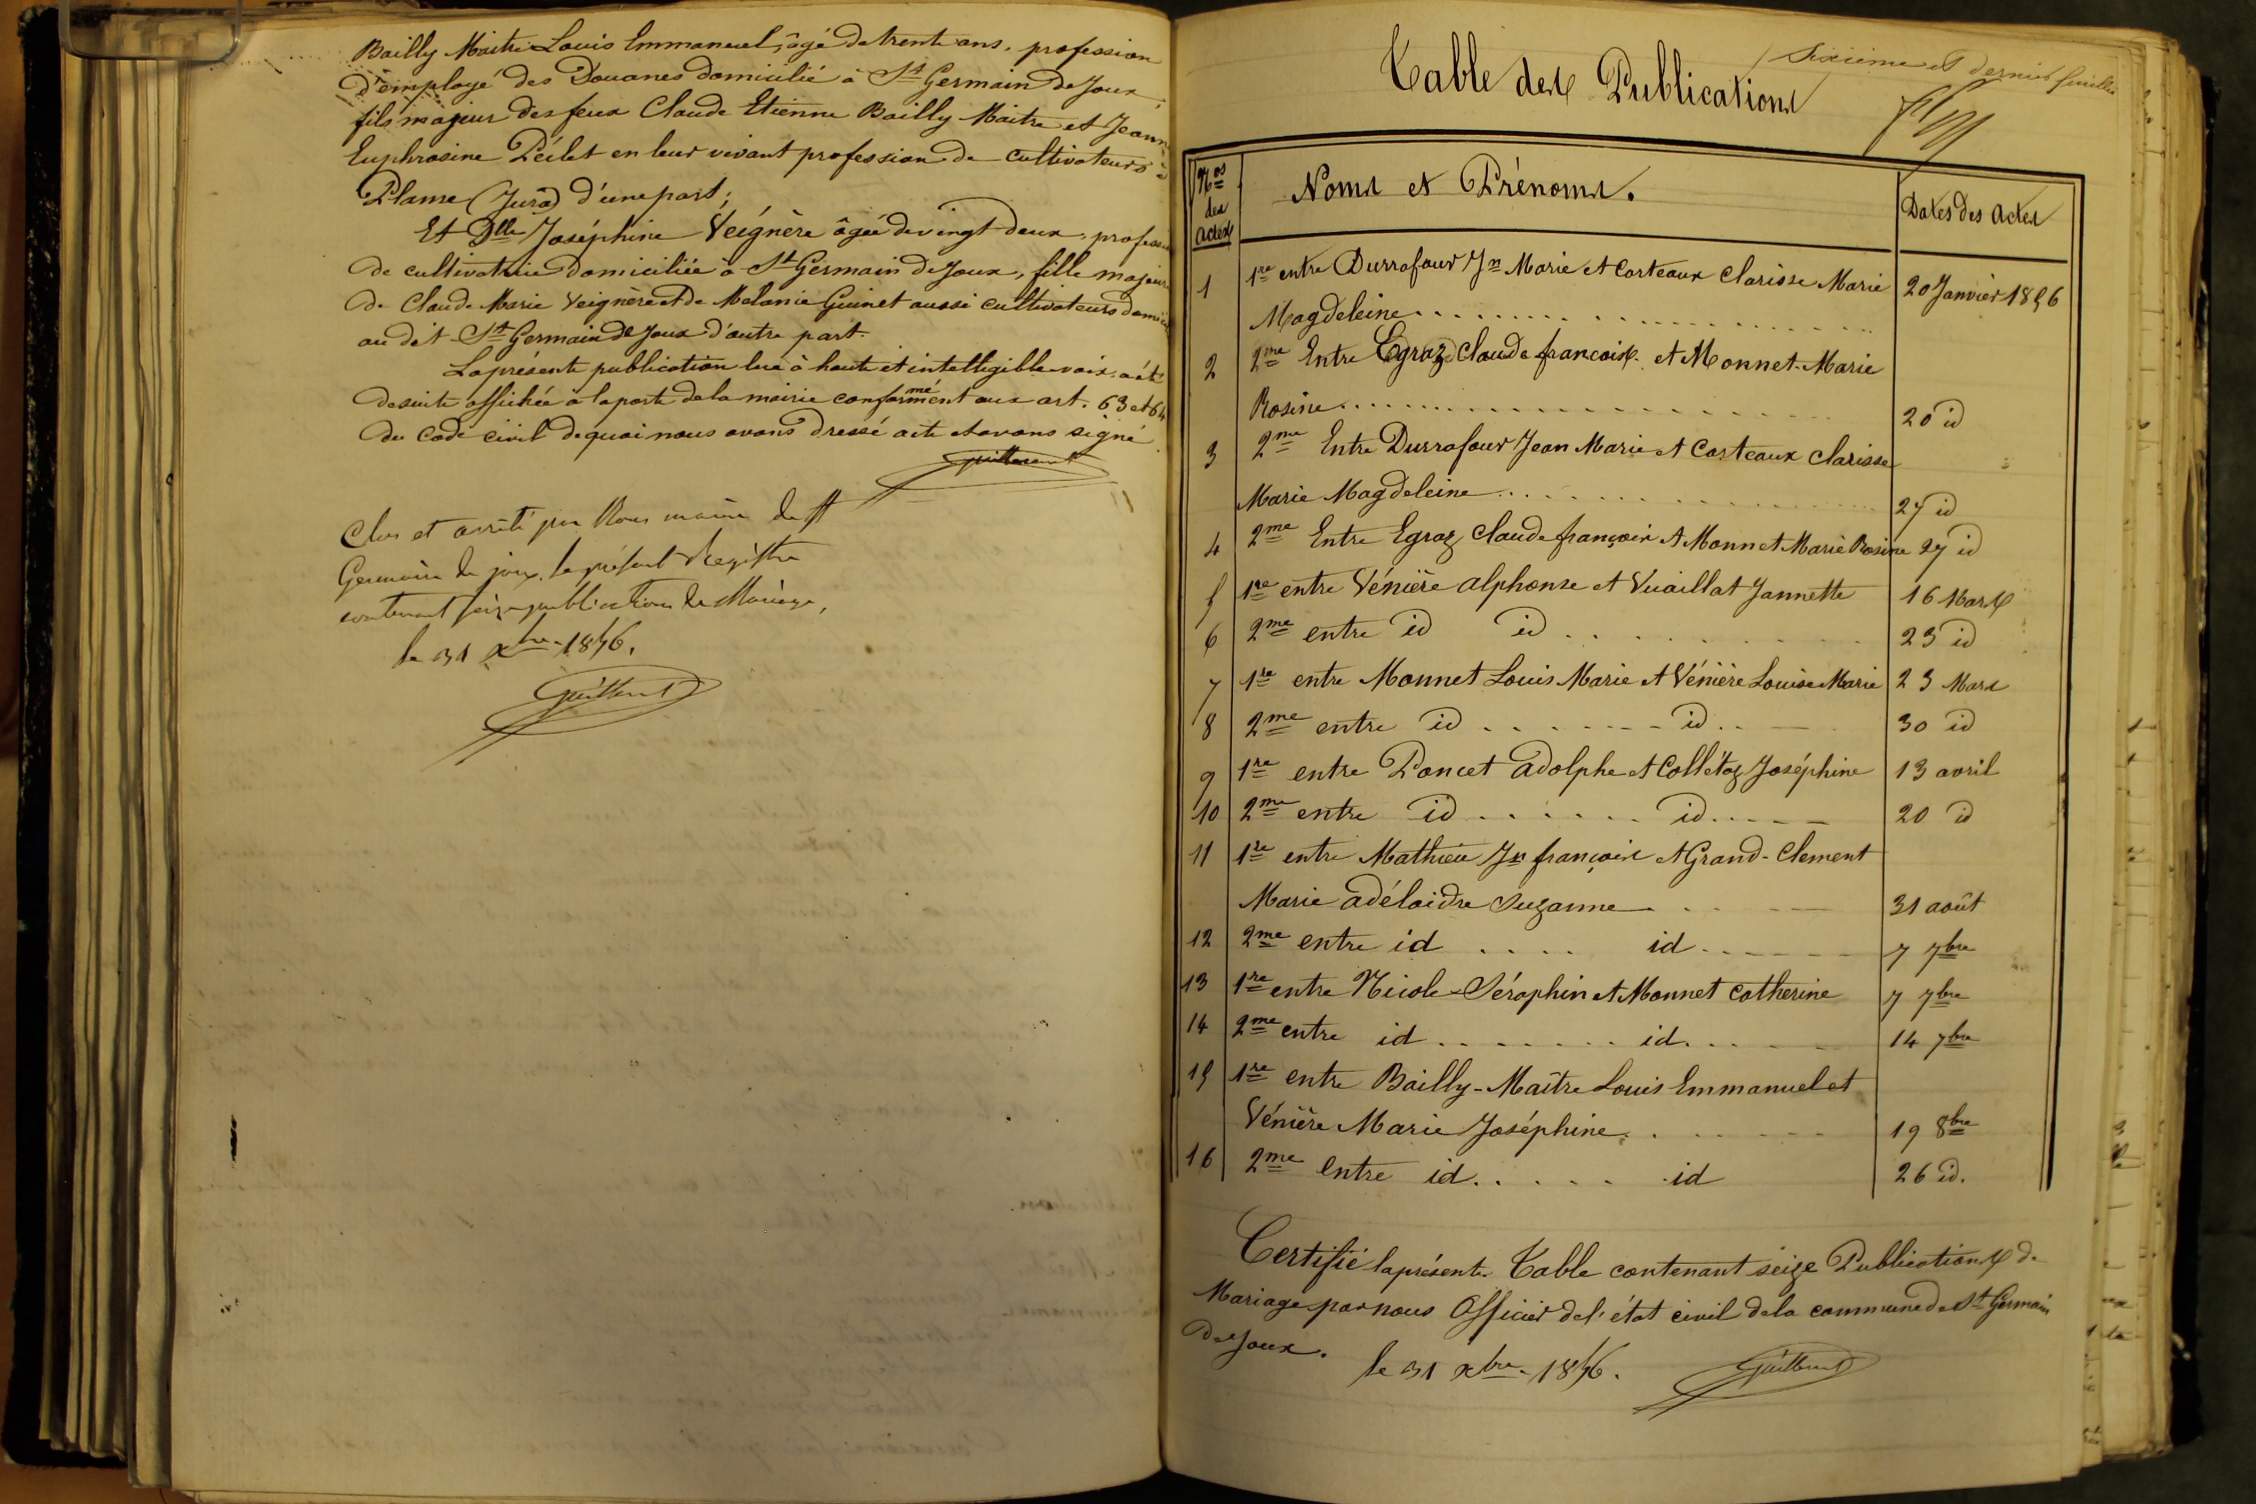 Bailly Maitre Louis Emmanuel, âgé de trente ans, profession
d'employé des Douanes domicilié à St Germain de Joux,
fils majeur des feux Claude Etienne Bailly Maitre et Jeanne
Euphrosine Péclet en leur vivant profession de cultivateurs à
Plasne (Jura) d'une part;
Et Dlle Joséphine Veignère âgée de vingt deux, profession
de cultivatrice domiciliée à St Germain de Joux, fille majeure
de Claude Marie Veignère et de Melanie Guinet aussi cultivateurs
au dit St Germain de Joux d'autre part.
La présente publication lue à haute et intelligible voix, a été
de suite affichée à la porte de la mairie conformément aux art. 63 et 64
du code civil de quoi nous avons dressé acte et avons signé
Clos et arrêté par Nous maire de St
Germain de joux, le présent Registre
contenant seize publications de Mariage,
le 31 Xbre 1856.
Sixième et dernier feuillet
Table des Publications
Nos des actes
Noms et Prénoms.
Dates des actes
1 1re entre Durrafour Jn Marie et Carteaux Clarisse Marie
Magdeleine 20 Janvier 1856
2 2me Entre Egraz Claude francois et Monnet Marie
Rosine 20 id
3 2me Entre Durrafour Jean Marie et Carteaux Clarisse
Marie Magdeleine 27 id
4 2me Entre Egraz Claude françois et Monnet Marie Rosine 27 id
5 1re entre Vénière alphonse et Vuaillat Jannette 16 Mars
6 2me entre id id 23 id
7 1re entre Monnet Louis Marie et Vénière Louise Marie 23 Mars
8 2me entre id id 30 id
9 1re entre Poncet Adolphe et Collétaz Joséphine 13 avril
10 2me entre id id 20 id
11 1re entre Mathieu Jn françois et Grand-Clement
Marie adélaidre Suzanne 31 août
12 2me entre id id 7 7bre
13 1re entre Nicole Séraphin et Monnet Catherine 7 7bre
14 2me entre id id 14 7bre
15 1re entre Bailly-Maître Louis Emmanuel et
Vénière Marie Joséphine 19 8bre
16 2me Entre id id 26 id.
Certifié la présente Table contenant seize Publications de
Mariage par nous Officier de l'état civil de la commune de St Germain
de Joux.
le 31 Xbre 1856.